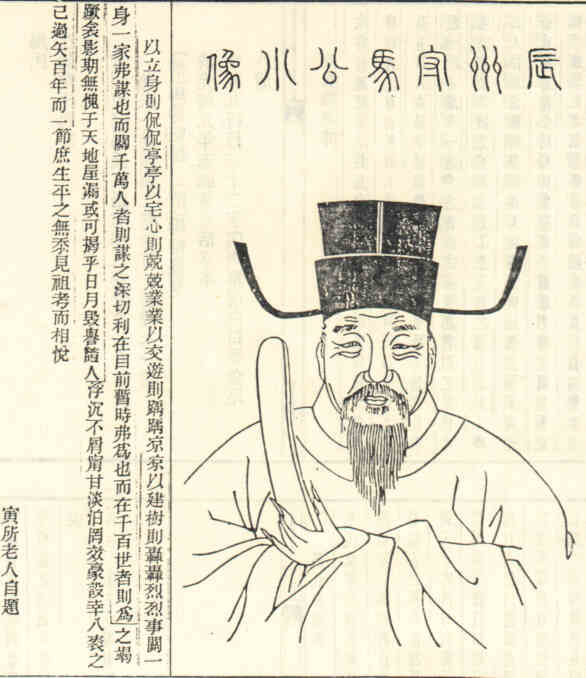 辰州守馬公小像
以立身則侃侃亭亭以宅心則兢兢業業以交遊則踽踽凉凉以建樹則轟轟烈烈事關一
身一家弗謀也而關千萬人者則謀之深切利在目前暫時弗爲也而在千百世者則爲之竭
蹶衾影期無愧于天地屋漏或可揭乎日月毀譽隨人浮沉不屑甯甘淡泊罔效豪設幸八袠之
已過矣百年而一節庶生平之無忝見祖考而相悅
寅所老人自題